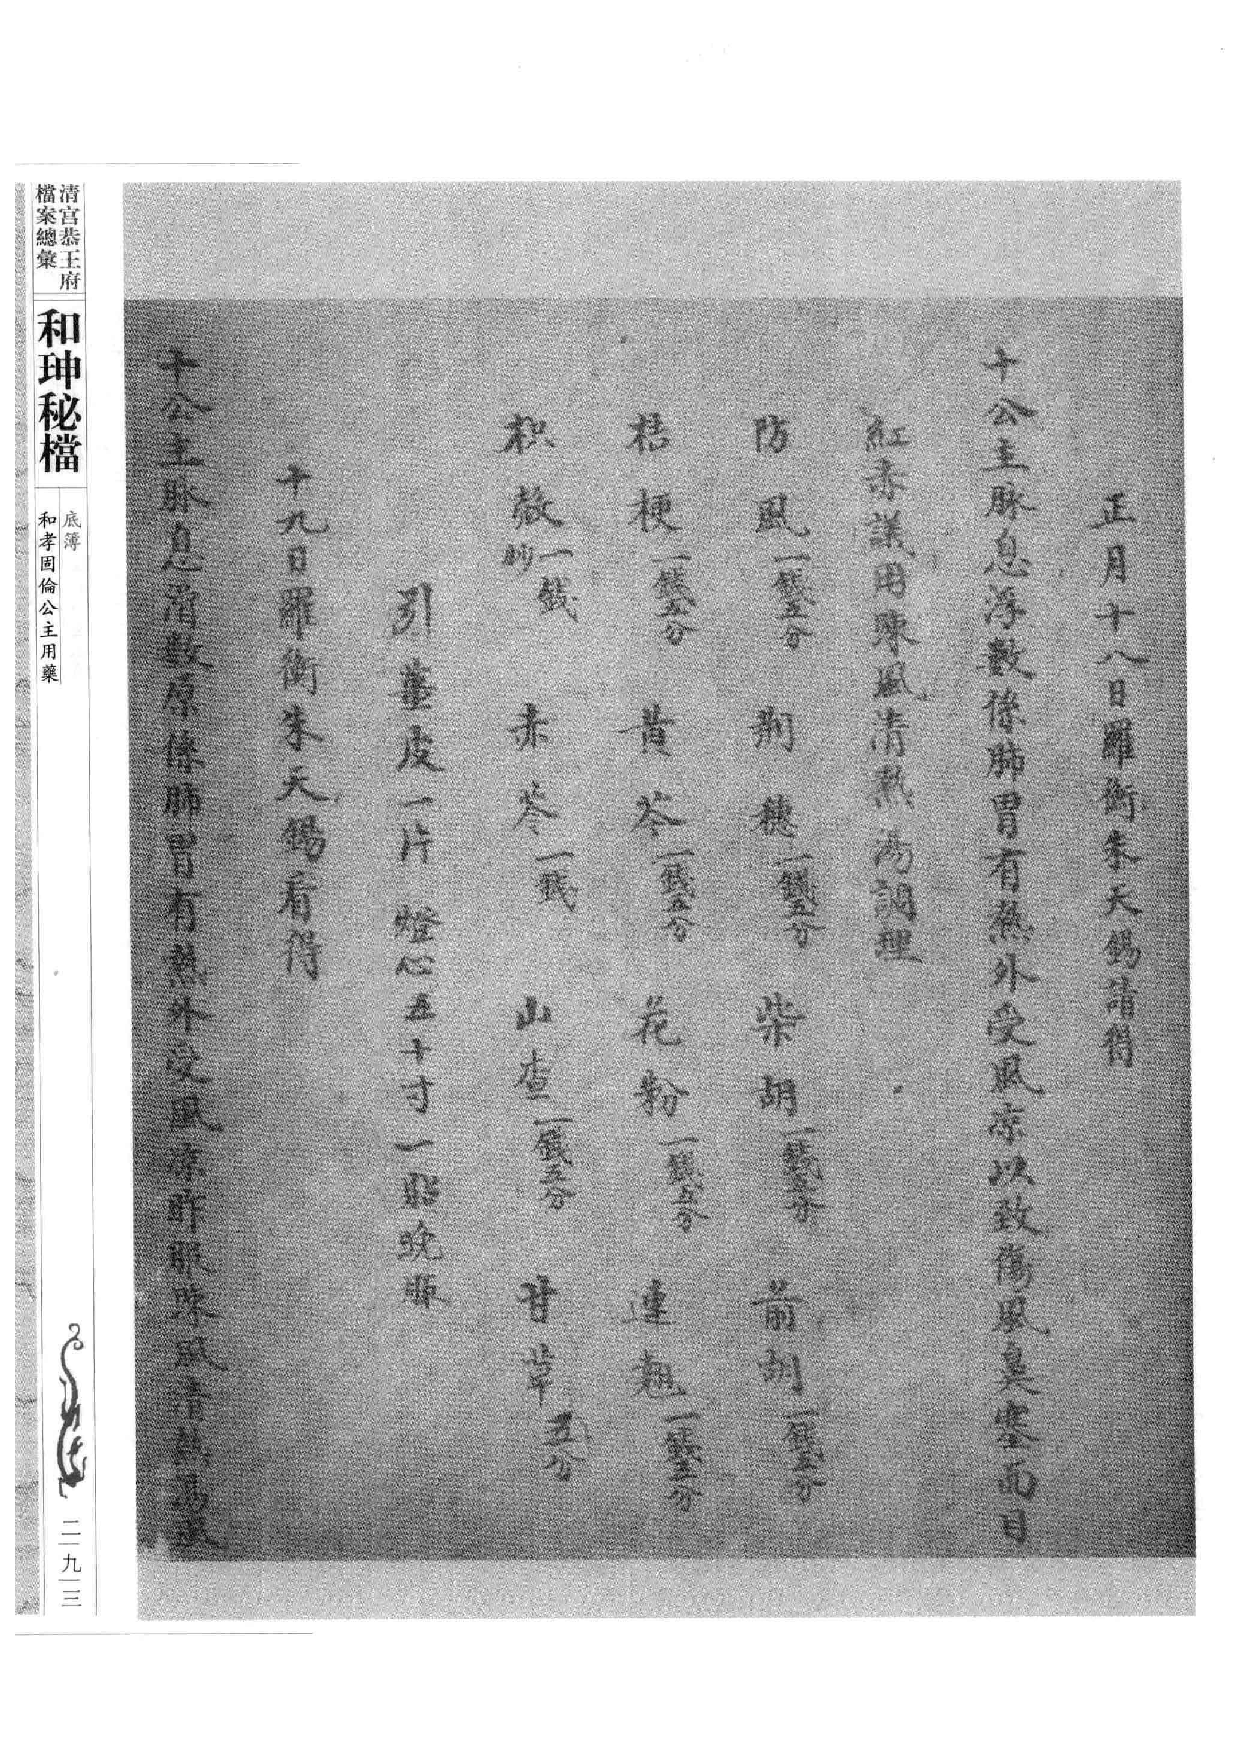 正月十八日羅衡朱天錫請得
十公主脉息浮數係肺胃有熱外受風凉以致傷風鼻塞面目
紅赤議用踈風清熱湯調理
防風一錢五分 荆穗一錢五分 柴胡一錢五分 前胡一錢五分
桔梗一錢五分 黄芩一錢五分 花粉一錢五分 連翹一錢五分
枳殼一錢炒 赤苓一錢 山查一錢五分 甘草五分
引薑皮一片 燈心五十寸一貼晚服
十九日羅衡朱天錫看得
十公主脉息滑數原係肺胃有熱外受風凉昨服踈風清熱湯
清宫恭王府
檔案總彙
和珅秘檔
底簿
和孝固倫公主用藥
二九三